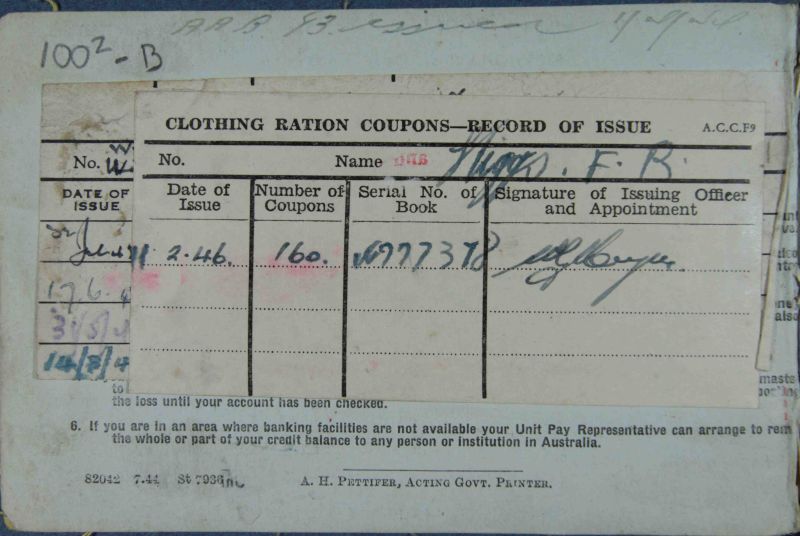 A.A.B. 83 issued
100² - B
CLOTHING RATION COUPONS—RECORD OF ISSUE A.C.C.F9
No. W
No. Name Higgs. F. R.
DATE OF ISSUE
Date of Issue Number of Coupons Serial No. of Book Signature of Issuing Officer and Appointment
11 2.46. 160. N777378
17.6.
31/5/4
14/8/4
to
the loss until your account has been checked.
6. If you are in an area where banking facilities are not available your Unit Pay Representative can arrange to rem
the whole or part of your credit balance to any person or institution in Australia.
82042 7.44 St 7936
A. H. Pettifer, Acting Govt. Printer.